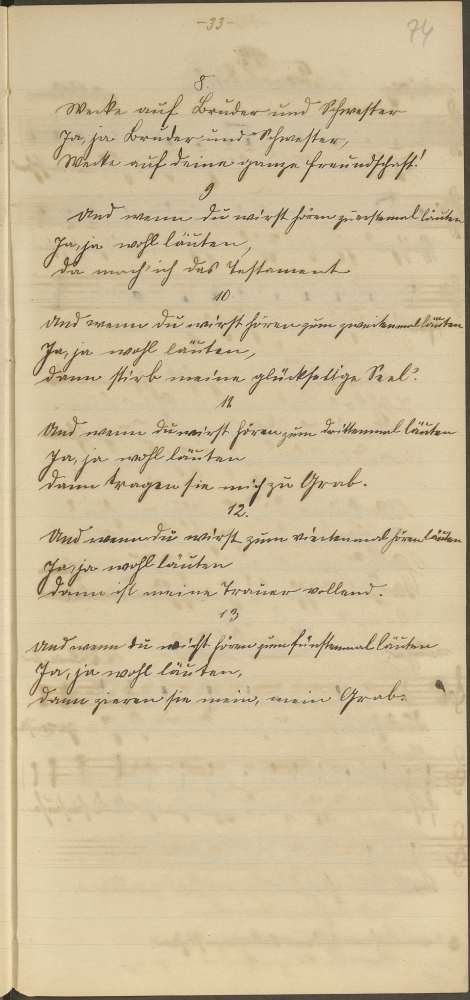 -33-
74
8.
Wecke auf Bruder und Schwester
Ja, ja Bruder und Schwester,
Wecke auf deine ganze Freundschaft!
9
Und wenn du wirst hören zu erstemal läuten
Ja, ja wohl läuten,
da mach ich das Testament
10.
Und wenn du wirst hören zum zweitenmal läuten
Ja, ja wohl läuten,
dann stirb meine glückselige Seel'.
11
Und wenn du wirst hören zum drittenmal läuten
Ja, ja wohl läuten
dann tragen sie mich zu Grab.
12.
Und wenn du wirst zum viertenmal hören läuten
Ja, ja wohl läuten
dann ist meine Trauer vollend.
13
Und wenn du wirst hören zum fünftenmal läuten
Ja, ja wohl läuten,
dann zieren sie mein, mein Grab.